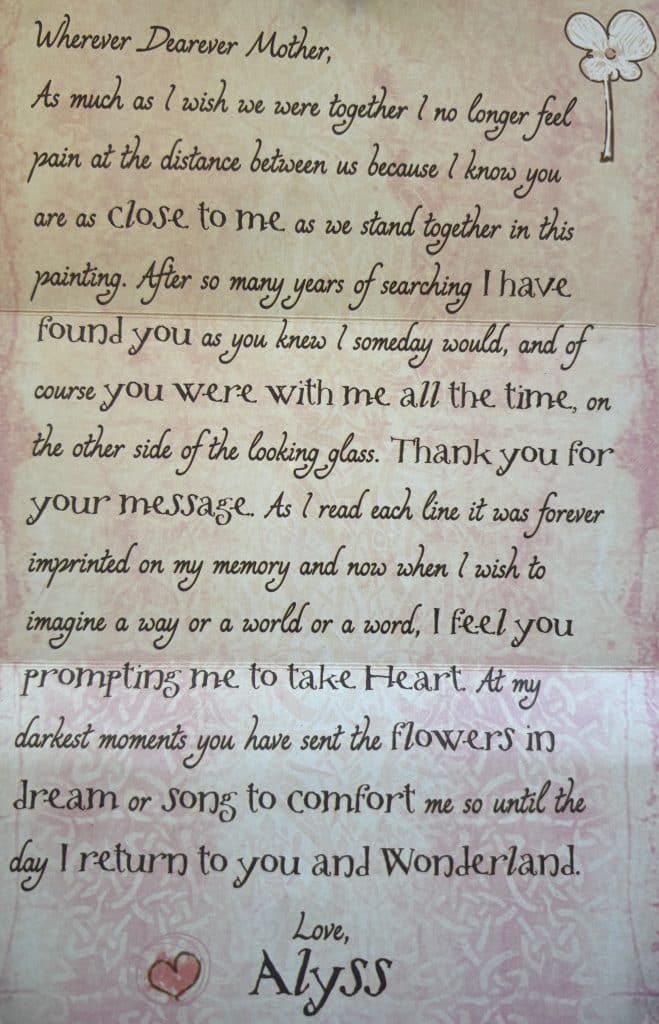 Wherever Dearever Mother,
As much as I wish we were together I no longer feel
pain at the distance between us because I know you
are as close to me as we stand together in this
painting. After so many years of searching I have
found you as you knew I someday would, and of
course you were with me all the time, on
the other side of the looking glass. Thank you for
your message. As I read each line it was forever
imprinted on my memory and now when I wish to
imagine a way or a world or a word, I feel you
prompting me to take Heart. At my
darkest moments you have sent the flowers in
dream or song to comfort me so until the
day I return to you and Wonderland.
Love,
Alyss